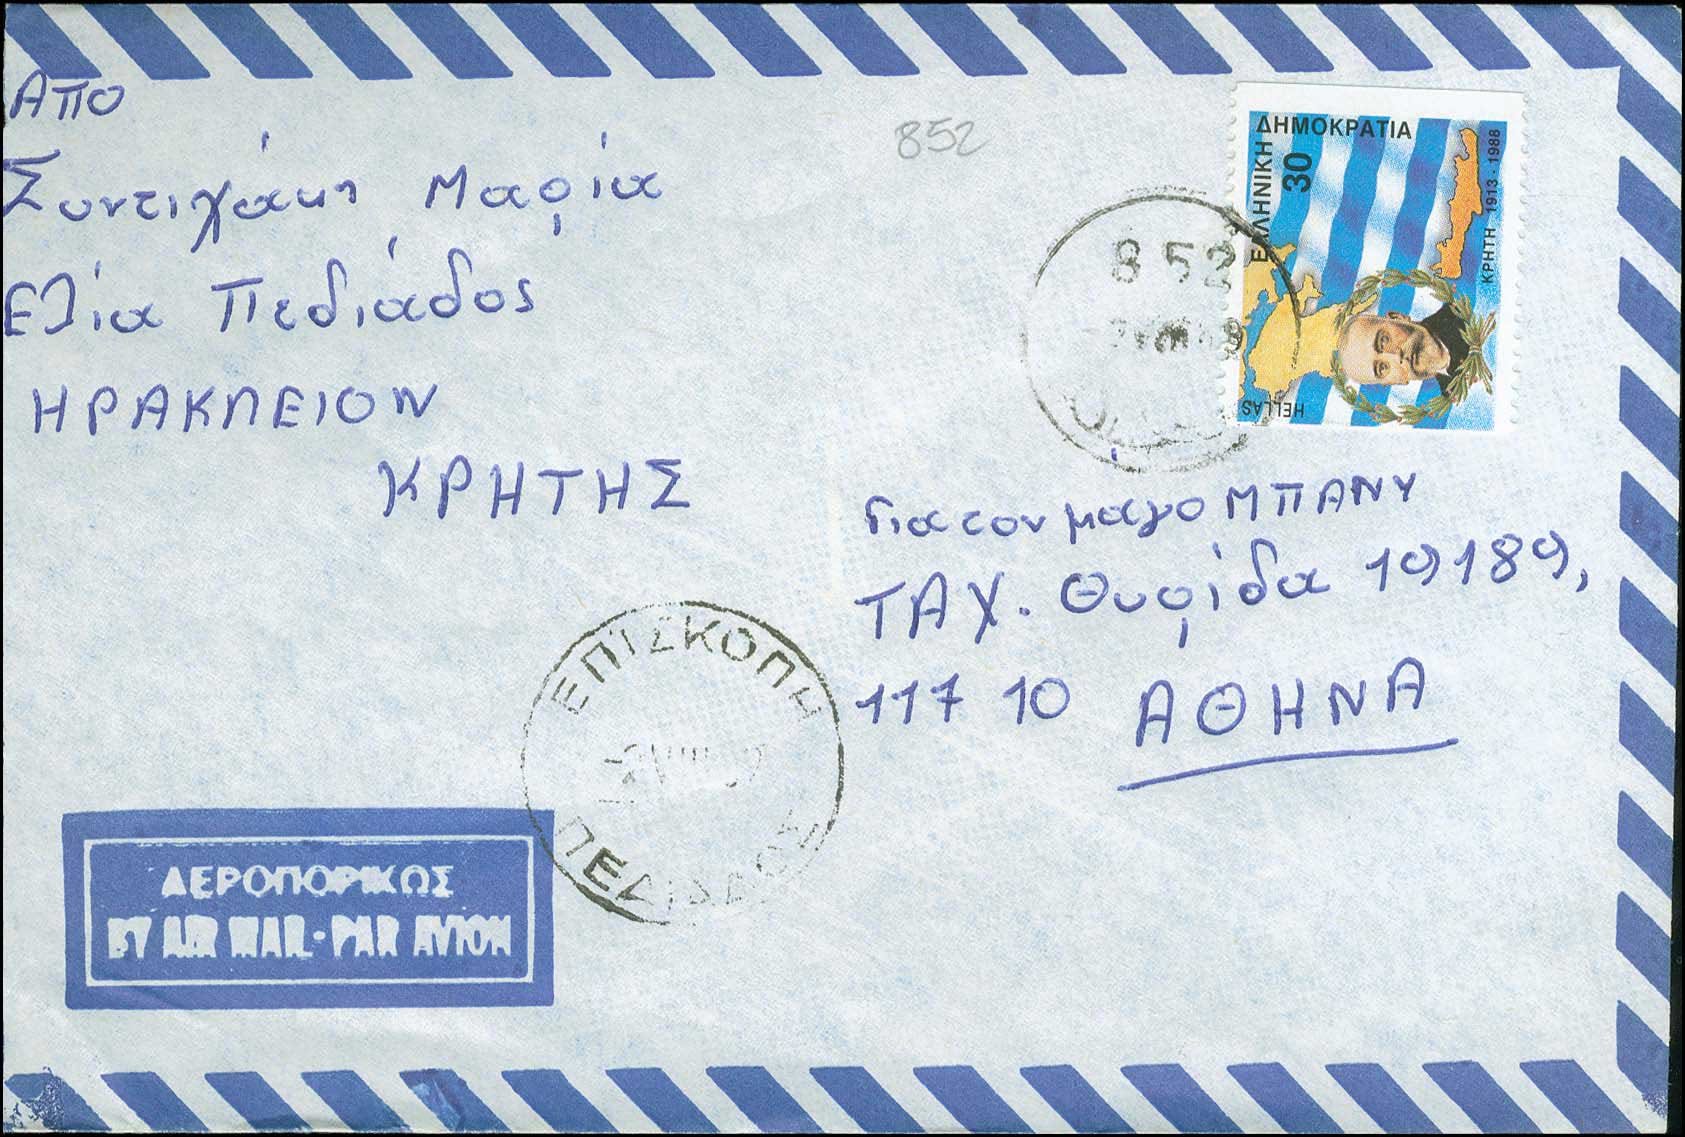 Από
Συντιχάκη Μαρία
Ελία Πεδιάδος
ΗΡΑΚΛΕΙΟΝ
ΚΡΗΤΗΣ
852
ΕΛΛΗΝΙΚΗ ΔΗΜΟΚΡΑΤΙΑ
30
ΚΡΗΤΗ 1913-1988
HELLAS
852
Για τον μάγο ΜΠΑΝΥ
ΤΑΧ. Θυρίδα 19189,
117 10 ΑΘΗΝΑ
ΕΠΙΣΚΟΠΗ
ΠΕΔΙΑΔΟΣ
ΑΕΡΟΠΟΡΙΚΩΣ
BY AIR MAIL-PAR AVION